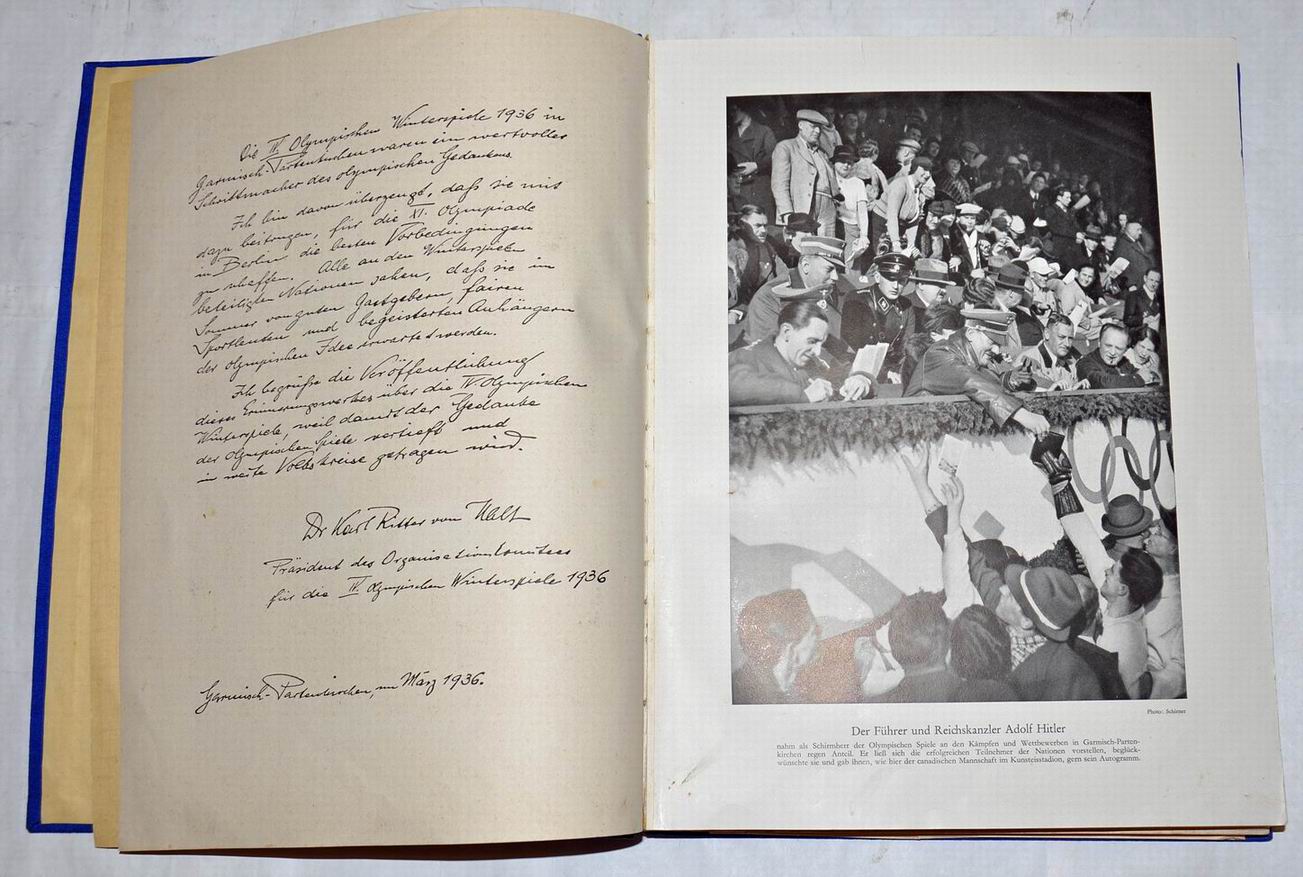 Die IV. Olympischen Winterspiele 1936 in
Garmisch-Partenkirchen waren ein wertvoller
Schrittmacher des olympischen Gedankens.
Ich bin davon überzeugt, daß sie mit
dazu beitrugen, für die XI. Olympiade
in Berlin die besten Vorbedingungen
zu schaffen. Alle an den Winterspielen
beteiligten Nationen sahen, daß sie im
Sommer von guten Gastgebern, fairen
Sportleuten und begeisterten Anhängern
der olympischen Idee erwartet werden.
Ich begrüße die Veröffentlichung
dieses Erinnerungswerkes über die IV. Olympischen
Winterspiele, weil damit der Gedanke
der Olympischen Spiele vertieft und
in weite Volkskreise getragen wird.
Dr Karl Ritter von Halt
Präsident des Organisationskomitees
für die IV. Olympischen Winterspiele 1936
Garmisch-Partenkirchen, im März 1936.
Photo: Schirner
Der Führer und Reichskanzler Adolf Hitler
nahm als Schirmherr der Olympischen Spiele an den Kämpfen und Wettbewerben in Garmisch-Parten-
kirchen regen Anteil. Er ließ sich die erfolgreichen Teilnehmer der Nationen vorstellen, beglück-
wünschte sie und gab ihnen, wie hier der canadischen Mannschaft im Kunsteisstadion, gern sein Autogramm.